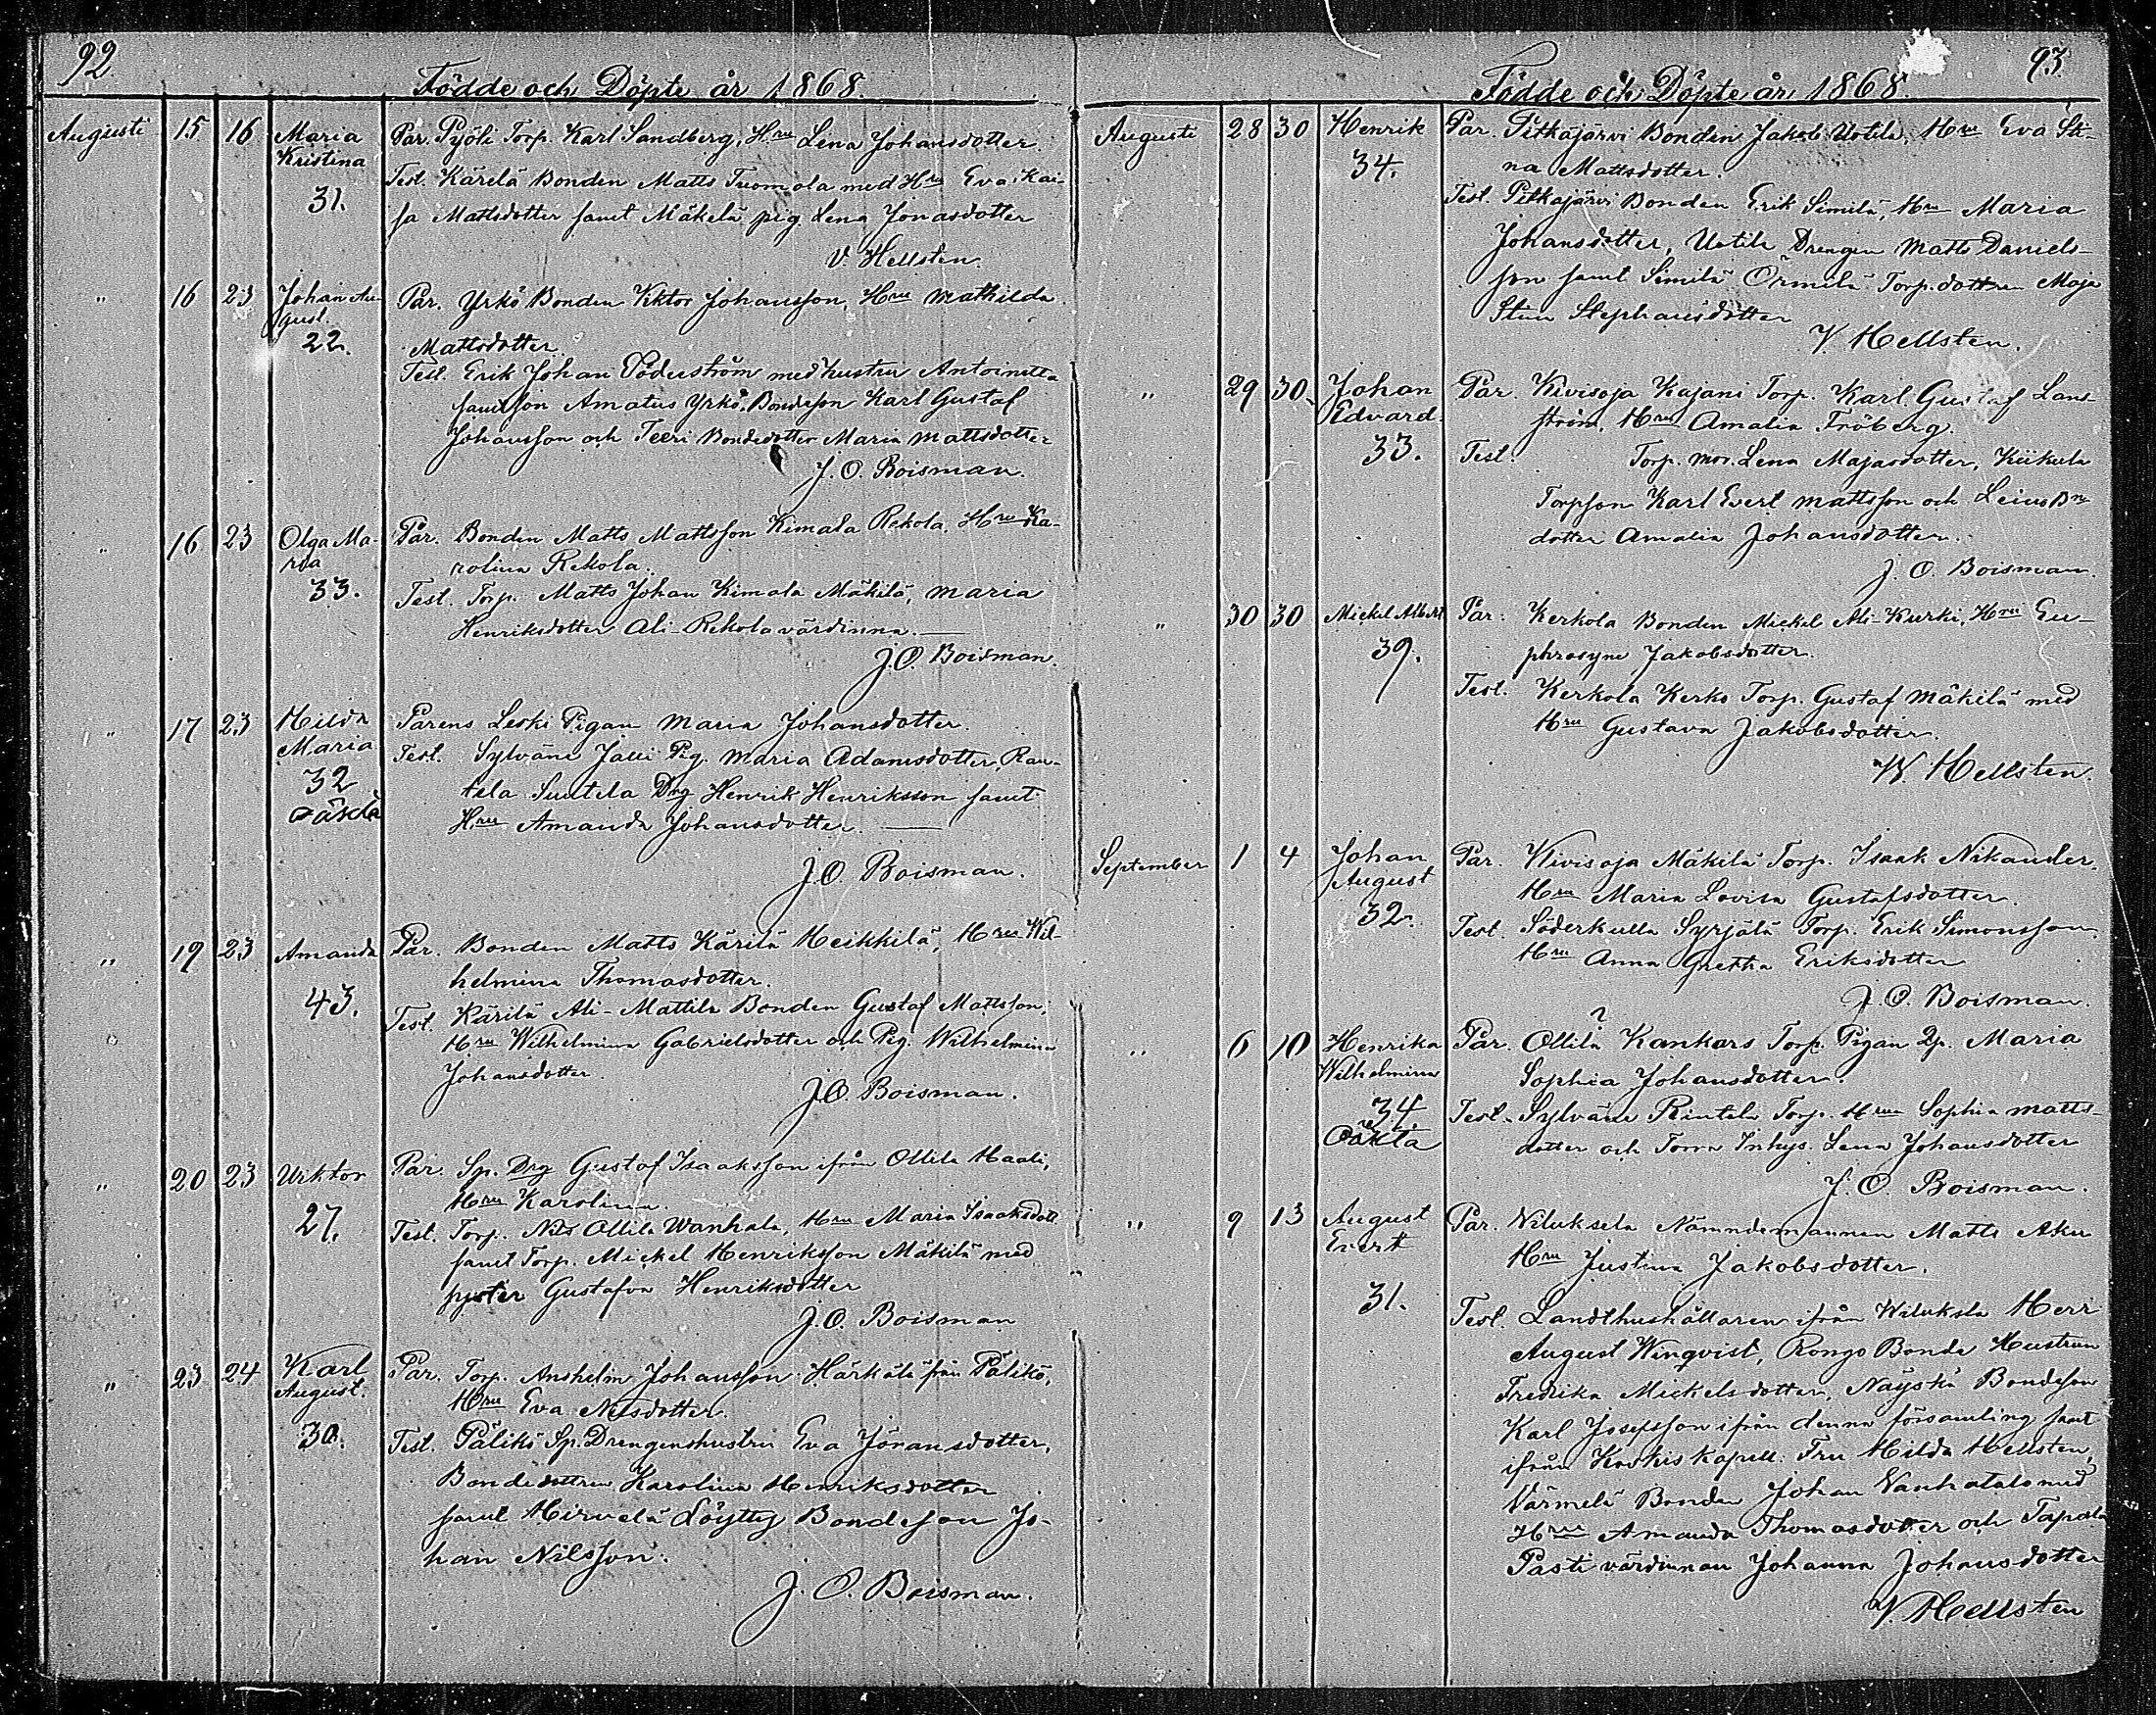 92.
Födde och Döpte år 1868.
Augusti 15 16 Maria Par. Pyöli Torp. Karl Sandberg, Hru Lena Johansdotter.
Kristina
Test. Kärelä Bonden Matts Tuomola med Hru Eva Kai-
31.
sa Mattsdotter samt Mäkelä pig. Lena Jonasdotter
V. Hellsten.
" 16 23 Johan Au- Par. Yrkö Bonden Viktor Johansson, Hru Mathilda
gust.
22. Mattsdotter
Test. Erik Johan Söderström med hustru Antoinetta
samt son Amatus Yrkö, Bondeson Karl Gustaf
Johansson och Teeri Bondedotter Maria Mattsdotter
J. O. Boisman.
" 16 23 Olga Ma- Par. Bonden Matts Mattsson Kimala Rekola, Hru Ka-
ria rolina Rekola.
33. Test. Torp. Matts Johan Kimala Mäkilä, Maria
Henriksdotter Ali-Rekola värdinna.
J. O. Boisman.
" 17 23 Hilda Parens Leski Pigan Maria Johansdotter.
Maria Test. Sylväne Pig. Maria Adamsdotter, Ran-
32 tala Suutela Drg Henrik Henriksson samt
oäkta Hru Amanda Johansdotter.
J. O. Boisman.
" 19 23 Amanda Par. Bonden Matts Kärilä Heikkilä, Hru Wil-
helmina Thomasdotter.
43. Test. Kärilä Ali-Mattila Bonden Gustaf Mattsson,
Hru Wilhelmina Gabrielsdotter och Pig. Wilhelmina
Johansdotter.
J. O. Boisman.
" 20 23 Wiktor Par. Sp. Drg Gustaf Isaaksson ifrån Ollila Haali,
Hru Karolina.
27. Test. Torp. Nils Ollila Wanhala, Hru Maria Isaaksdott
samt Torp. Mickel Henriksson Mäkilä med
syster Gustafva Henriksdotter
J. O. Boisman
" 23 24 Karl Par. Torp. Anshelm Johansson Härkälä från Pälikö,
August. Hru Eva Nilsdotter.
30. Test. Pälikö Sp. Drengenshustru Eva Göransdotter,
Bondedottren Karolina Henriksdotter
samt Hirvelä Löytty Bondeson Jo-
han Nilsson.
J. O. Boisman.
93.
Födde och Döpte år 1868.
Augusti 28 30 Henrik Par. Pitkäjärvi Bonden Jakob Uotila, Hru Eva Sti-
34. na Mattsdotter.
Test. Pitkajärvi Bonden Erik Similä, Hru Maria
Johansdotter, Uotila Drengen Matts Daniels-
son samt Similä Ormilä Torp.dottren Maja
Stina Stephansdotter
V. Hellsten.
" 29 30. Johan Par. Kivisoja Kajani Torp. Karl Gustaf Lans-
Edvard. ström, Hru Amalia Fröberg.
33. Test. Torp. mor. Lena Majasdotter, Kiikula
Torpson Karl Evert Mattsson och Leius Bn
dotter Amalia Johansdotter.
J. O. Boisman.
" 30 30 Mickel Albert Par. Kerkola Bonden Mickel Ali-Kurki, Hru Eu-
39. phrosyne Jakobsdotter.
Test. Kerkola Kerko Torp. Gustaf Mäkilä med
Hru Gustava Jakobsdotter.
W Hellsten.
September 1 4 Johan Par. Kivisoja Mäkilä Torp. Isaak Nikander.
August Hru Maria Lovisa Gustafsdotter.
32. Test. Söderkulla Syrjälä Torp. Erik Simonsson,
Hru Anna Gretha Eriksdotter
J. O. Boisman.
?
" 6 10 Henrika Par. Ollila Kankars Torp. Pigan Maria
Wilhelmina Sophia Johansdotter.
34 Test. Sylväne Rintala Torp. Hru Sophia Matts-
oäkta dotter och Torra Inhys. Lena Johansdotter
J. O. Boisman.
" 9 13 August Par. Wiluksela Nämndemannen Matts Aku
Evert Hru Justina Jakobsdotter.
31. Test. Landthushållaren ifrån Wiluksla Herr
August Winqvist, Rongo Bonde Hustrun
Fredrika Mickelsdotter, Näyskä Bondeson
Karl Josefsson ifrån denna församling samt
ifrån Koskis kapell. Fru Hilda Hellsten,
Värmelä Bonden Johan Vanhatalo med
Hru Amanda Thomasdotter och Tapala
Pasti värdinnan Johanna Johansdotter
V. Hellsten